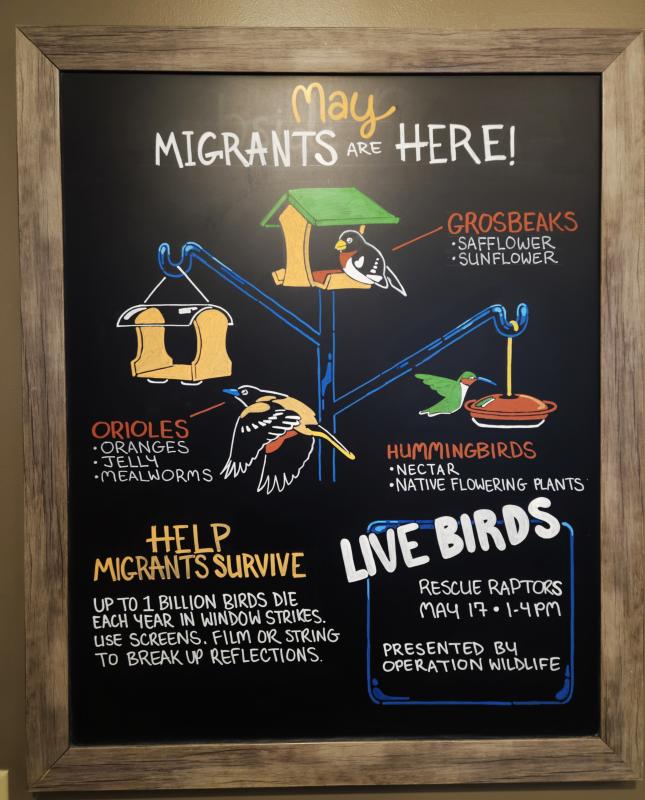 May
MIGRANTS ARE HERE!
GROSBEAKS
• SAFFLOWER
• SUNFLOWER
ORIOLES
• ORANGES
• JELLY
• MEALWORMS
HUMMINGBIRDS
• NECTAR
• NATIVE FLOWERING PLANTS
HELP
MIGRANTS SURVIVE
UP TO 1 BILLION BIRDS DIE
EACH YEAR IN WINDOW STRIKES.
USE SCREENS, FILM OR STRING
TO BREAK UP REFLECTIONS.
LIVE BIRDS
RESCUE RAPTORS
MAY 17 • 1-4 PM
PRESENTED BY
OPERATION WILDLIFE